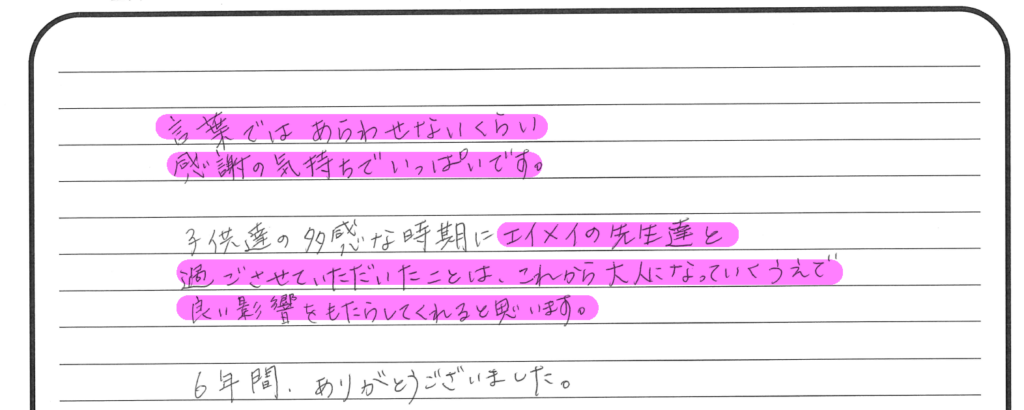 言葉では あらわせないくらい
感謝の気持ちでいっぱいです。
子供達の多感な時期にエイメイの先生達と
過ごさせていただいたことは、これから大人になっていくうえで
良い影響をもたらしてくれると思います。
6年間、ありがとうございました。